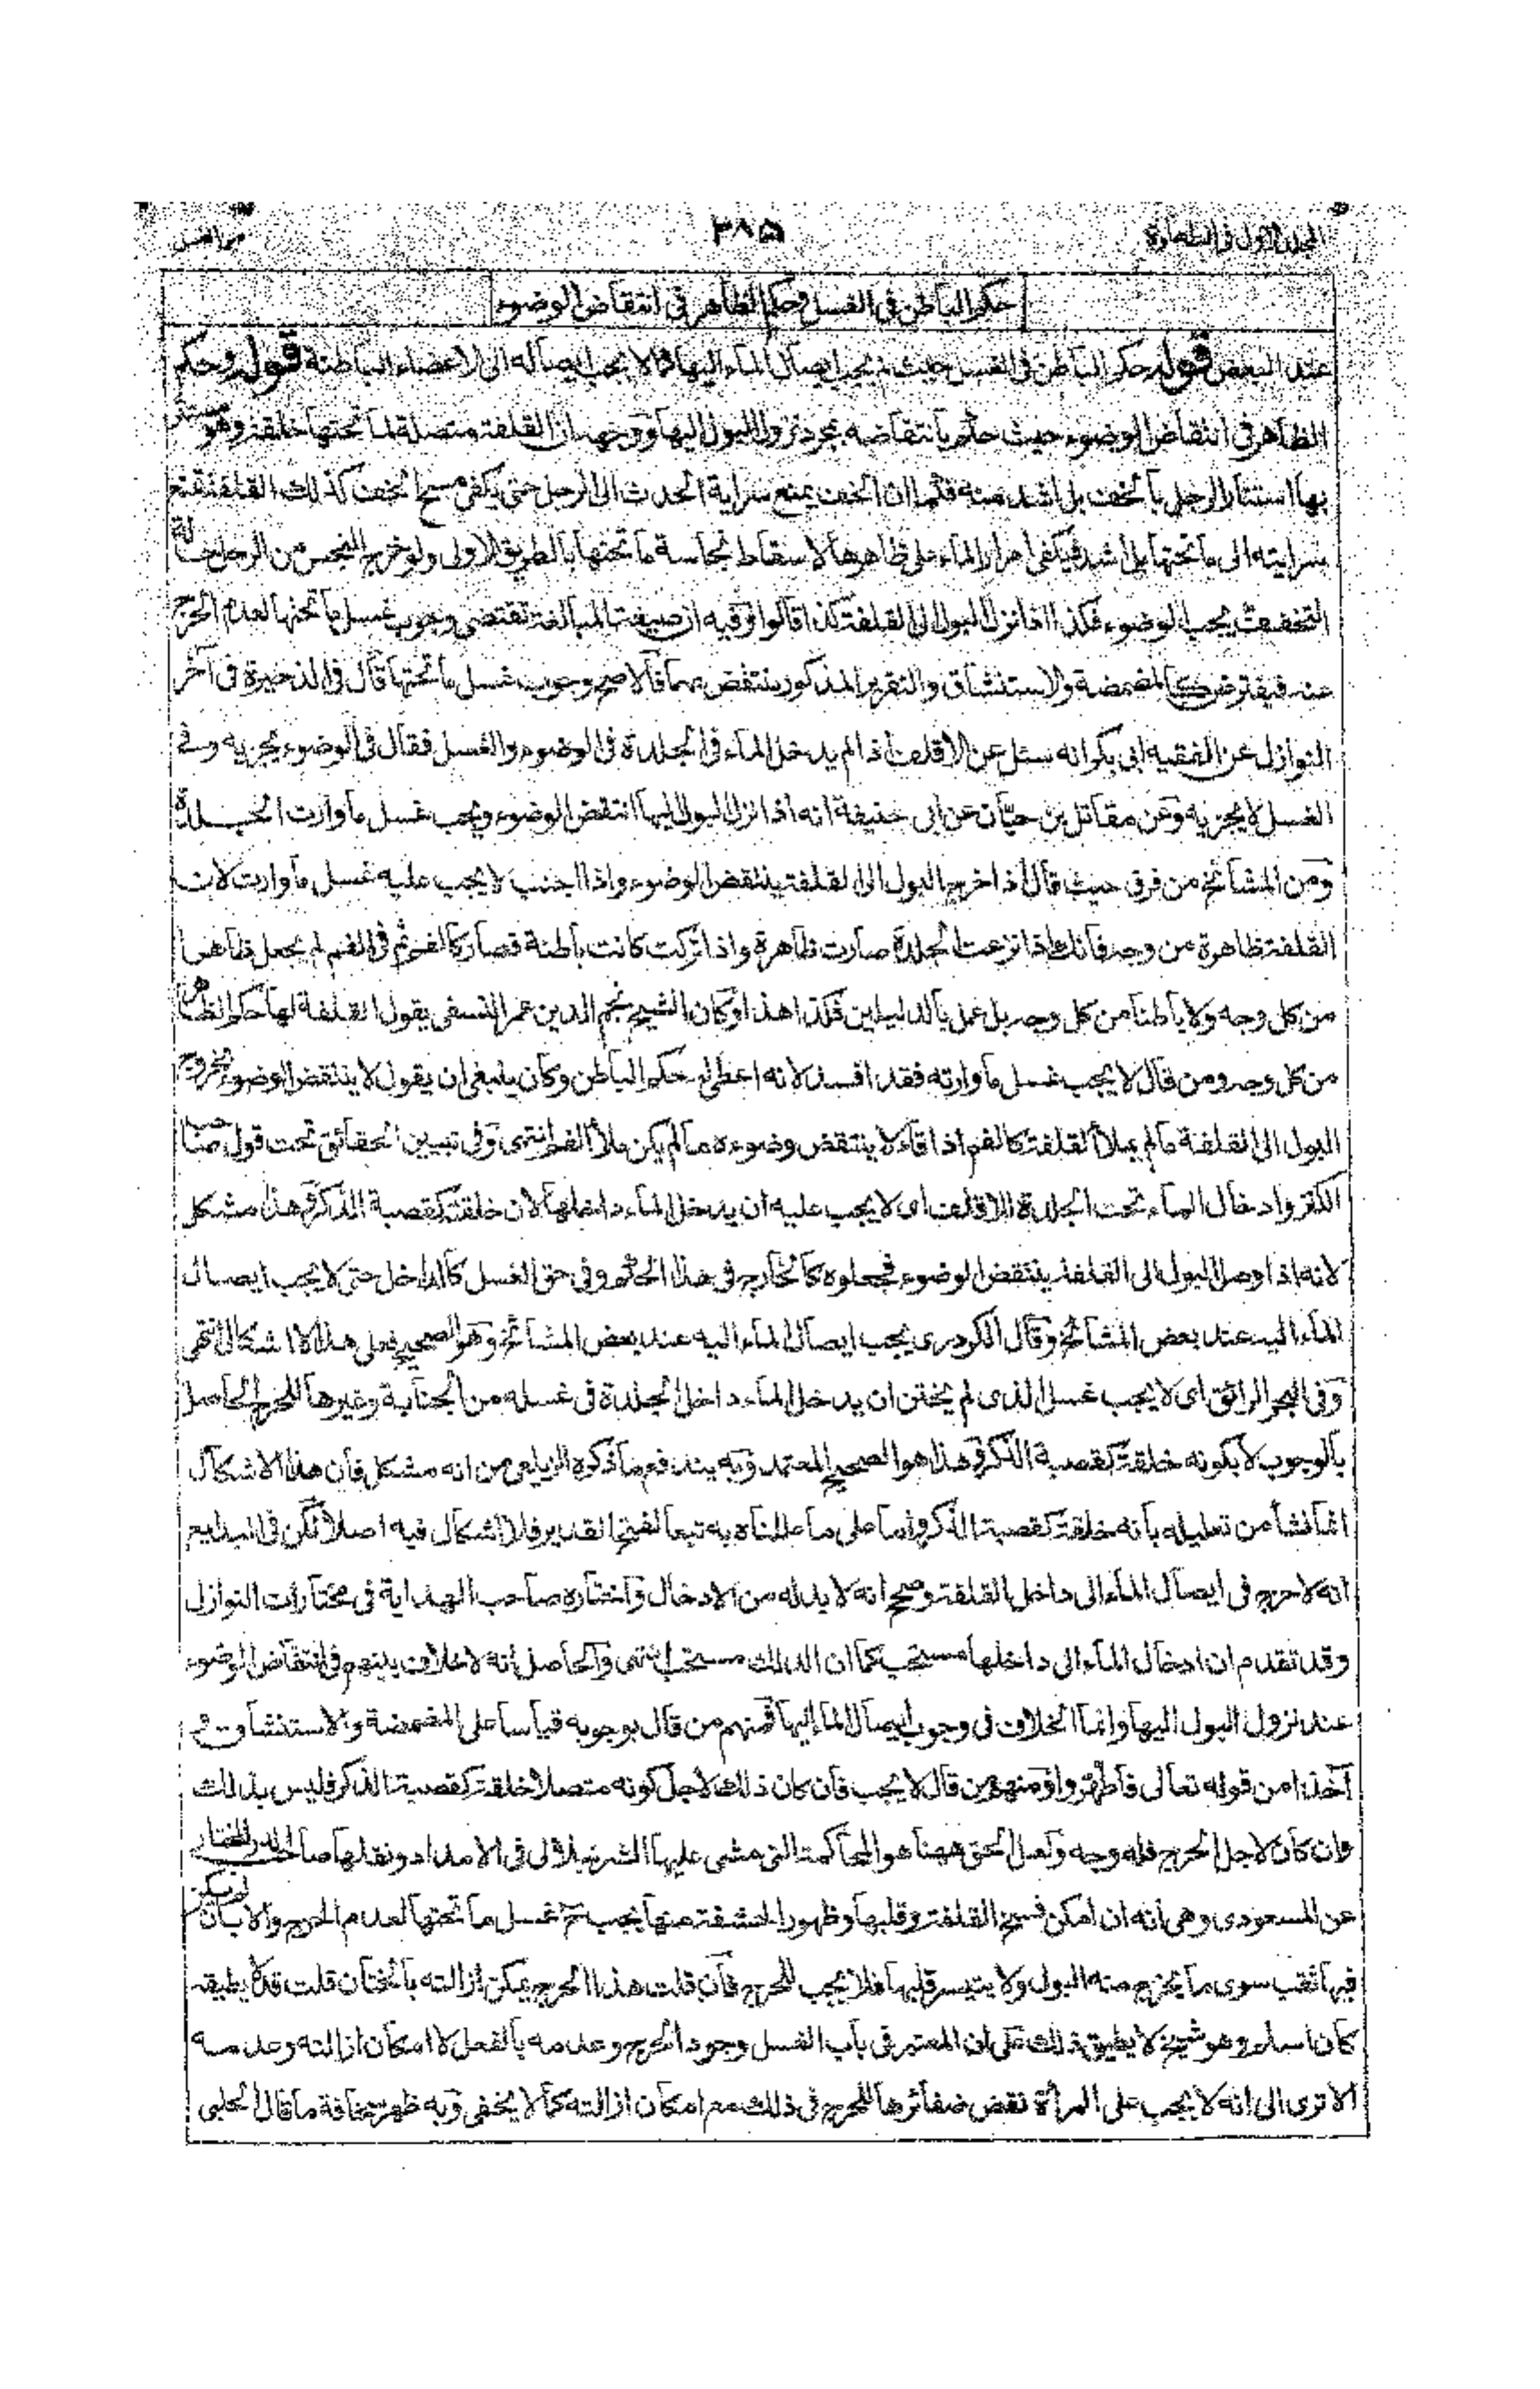 المجلد الاول فى الطهارة
٣٨٥
حكم الباطن فى الغسل وحكم الظاهر فى انتقاض الوضوء
عند البعض قوله حكم الباطن فى الغسل حيث لم يجب ايصال الماء اليها كما لا يجب ايصاله الى الاعضاء الباطنة قوله وحكم
الظاهر فى انتقاض الوضوء حيث حكم بانتقاضه بمجرد نزول البول اليها ووجهه ان القلفة متصلة لما تحتها خلقة وهو مستتر
بها استتار الرجل بالخف بل اشد منه فكما ان الخف يمنع سراية الحدث الى الرجل حتى يكفى مسح الخف كذلك القلفة تمنع
سرايته الى ما تحتها بل اشد فيكفى امرار الماء على ظاهرها لاسقاط نجاسة ما تحتها بالطريق الاولى ولو خرج النجس من الرجل حالة
التخفف يجب الوضوء فكذا اذا نزل البول الى القلفة كذا قالوا وفيه ان صيغة المبالغة تقتضى وجوب غسل ما تحتها لعدم الحرج
عنه فيفترض كالمضمضة والاستنشاق والتقرير المذكور ينتقض بهما فالاصح وجوب غسل ما تحتها قال فى الذخيرة فى آخر
النوازل عن الفقيه ابى بكر انه سئل عن الاقلف اذا لم يدخل الماء فى الجلدة فى الوضوء والغسل فقال فى الوضوء يجزيه وفى
الغسل لا يجزيه وعن مقاتل بن حيان عن ابى حنيفة انه اذا نزل البول اليها انتقض الوضوء ويجب غسل ما وارت الجلدة
ومن المشائخ من فرق حيث قال اذا خرج البول الى القلفة ينتقض الوضوء واذا اجنب لا يجب عليه غسل ما وارت لان
القلفة ظاهرة من وجه فانك اذا نزعت الجلدة صارت ظاهرة واذا تركت كانت باطنة فصار كالفم ثم فى الفم لم يجعل ظاهرا
من كل وجه ولا باطنا من كل وجه بل عمل بالدليلين فكذا هذا وكان الشيخ نجم الدين عمر النسفى يقول القلفة لها حكم الظاهر
من كل وجه ومن قال لا يجب غسل ما وارته فقد افسد لانه اعطى له حكم الباطن وكان ينبغى ان يقول لا ينتقض الوضوء بخروج
البول الى القلفة ما لم يملأ القلفة كالفم اذا قاء لا ينتقض وضوءه ما لم يكن ملأ الفم انتهى وفى تبيين الحقائق تحت قول صاحب
الكنز وادخال الماء تحت الجلدة للاقلف اى لا يجب عليه ان يدخل الماء داخلها لان خلقته كقصبة الذكر وهذا مشكل
لانه اذا وصل البول الى القلفة ينتقض الوضوء فجعلوه كالخارج فى هذا الحكم وفى حق الغسل كالداخل حتى لا يجب ايصال
الماء اليه عند بعض المشائخ وقال الكردرى يجب ايصال الماء اليه عند بعض المشائخ وهو الصحيح فعلى هذا لا اشكال انتهى
وفى البحر الرائق اى لا يجب غسل الذى لم يختتن ان يدخل الماء داخل الجلدة فى غسله من الجنابة وغيرها للحرج الحاصل
بالوجوب لا لكونه خلقة كقصبة الذكر وهذا هو الصحيح المعتمد وبه يندفع ما ذكره الزيلعى من انه مشكل فان هذا الاشكال
انما نشأ من تعليله بانه خلقة كقصبة الذكر واما على ما عللناه به تبعا لفتح القدير فلا اشكال فيه اصلا لكن فى البدائع
انه لا حرج فى ايصال الماء الى داخل القلفة وصحح انه لا بد له من الادخال واختاره صاحب الهداية فى مختارات النوازل
وقد تقدم ان ادخال الماء الى داخلها مستحب كما ان الدلك مستحب انتهى والحاصل انه لا خلاف بينهم فى انتقاض الوضوء
عند نزول البول اليها وانما الخلاف فى وجوب ايصال الماء اليها فمنهم من قال بوجوبه قياسا على المضمضة والاستنشاق و
آخذا من قوله تعالى فاطهروا ومنهم من قال لا يجب فان كان ذلك لاجل كونه متصلا خلقة كقصبة الذكر فليس بذلك
وان كان لاجل الحرج فله وجه ولعل الحق ههنا هو المحاكمة التى مشى عليها الشرنبلالى فى الامداد ونقلها صاحب الدر المختار
عن المسعودى وهى انه ان امكن فسخ القلفة وقلبها وظهور الحشفة منها يجب غسل ما تحتها لعدم الحرج والا بان لم يكن
فيها ثقب سوى ما يخرج منه البول ولا يتيسر قلبها فلا يجب للحرج فان قلت هذا الحرج يمكن ازالته بالختان قلت قد لا يطيقه
كان اسلم وهو شيخ لا يطيق ذلك على ان المعتبر فى باب الغسل وجود الحرج وعدمه بالفعل لا امكان ازالته وعدمه
الا ترى الى انه لا يجب على المرأة نقض ضفائرها للحرج فى ذلك مع امكان ازالته كما لا يخفى وبه ظهر سخافة ما قال الحلبى